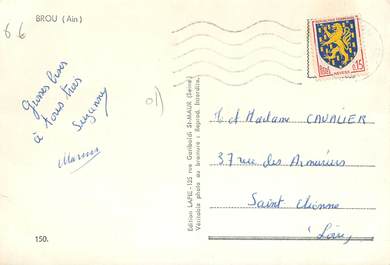 BROU (Ain)
6 6
Grosses bises
à tous trois
Suzanne
Marius
01)
150.
Edition LAPIE - 125 rue Garibaldi St-MAUR (Seine)
Véritable photo au bromure : Reprod. Interdite.
REPUBLIQUE FRANÇAISE
0,15
NEVERS
M et Madame CAVALIER
37 rue des Armuriers
Saint Etienne
(Loire)